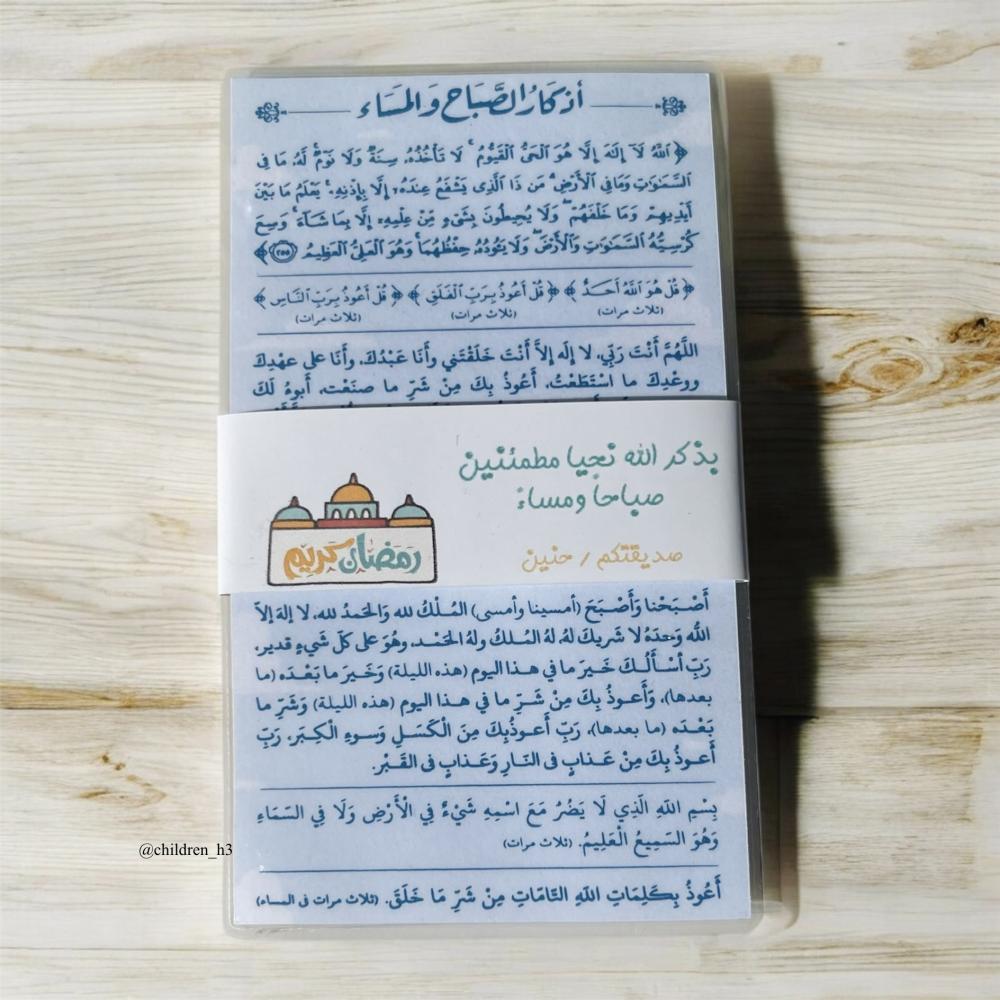 أذكار الصَّبَاح وَالمَسَاء
﴿ ٱللَّهُ لَآ إِلَٰهَ إِلَّا هُوَ ٱلْحَىُّ ٱلْقَيُّومُ ۚ لَا تَأْخُذُهُۥ سِنَةٌ وَلَا نَوْمٌ ۚ لَّهُۥ مَا فِى
ٱلسَّمَٰوَٰتِ وَمَا فِى ٱلْأَرْضِ ۗ مَن ذَا ٱلَّذِى يَشْفَعُ عِندَهُۥٓ إِلَّا بِإِذْنِهِۦ ۚ يَعْلَمُ مَا بَيْنَ
أَيْدِيهِمْ وَمَا خَلْفَهُمْ ۖ وَلَا يُحِيطُونَ بِشَىْءٍ مِّنْ عِلْمِهِۦٓ إِلَّا بِمَا شَآءَ ۚ وَسِعَ
كُرْسِيُّهُ ٱلسَّمَٰوَٰتِ وَٱلْأَرْضَ ۖ وَلَا يَـُٔودُهُۥ حِفْظُهُمَا ۚ وَهُوَ ٱلْعَلِىُّ ٱلْعَظِيمُ ٢٥٥ ﴾
﴿ قُلْ هُوَ ٱللَّهُ أَحَدٌ ﴾ ﴿ قُلْ أَعُوذُ بِرَبِّ ٱلْفَلَقِ ﴾ ﴿ قُلْ أَعُوذُ بِرَبِّ ٱلنَّاسِ ﴾
(ثلاث مرات) (ثلاث مرات) (ثلاث مرات)
اللَّهُمَّ أَنْتَ رَبِّي، لا إِله إِلاَّ أَنْتَ خَلَقْتَني وأَنَا عَبْدُكَ، وأَنَا على عهْدِكَ
ووعْدِكَ ما اسْتَطَعْتُ، أَعُوذُ بِكَ مِنْ شَرِّ ما صنَعْت، أَبوءُ لَكَ
بذكر الله نحيا مطمئنين
صباحاً ومساءً
رمضان كريم
صديقتكم / حنين
أَصْبَحْنا وَأَصْبَحَ (أمسينا وأمسى) المُلْكُ لله وَالحَمدُ لله، لا إلهَ إلاّ
اللّٰهُ وَحدَهُ لا شَريكَ لهُ، لهُ المُلكُ ولهُ الحَمْد، وهُوَ على كلّ شَيءٍ قدير،
رَبِّ أسْأَلُكَ خَيرَ ما في هذا اليوم (هذه الليلة) وَخَيرَ ما بَعْدَه (ما
بعدها)، وَأَعوذُ بِكَ مِنْ شَرِّ ما في هذا اليوم (هذه الليلة) وَشَرِّ ما
بَعْدَه (ما بعدها)، رَبِّ أَعوذُبِكَ مِنَ الْكَسَلِ وَسوءِ الْكِبَر، رَبِّ
أَعوذُ بِكَ مِنْ عَذابٍ في النّارِ وَعَذابٍ في القَبْر.
بِسْمِ اللَّهِ الَّذِي لَا يَضُرُّ مَعَ اسْمِهِ شَيْءٌ فِي الْأَرْضِ وَلَا فِي السَّمَاءِ
وَهُوَ السَّمِيعُ الْعَلِيمُ. (ثلاث مرات)
أَعُوذُ بِكَلِمَاتِ اللّٰهِ التَّامَّاتِ مِنْ شَرِّ مَا خَلَقَ. (ثلاث مرات في المساء)
@children_h3